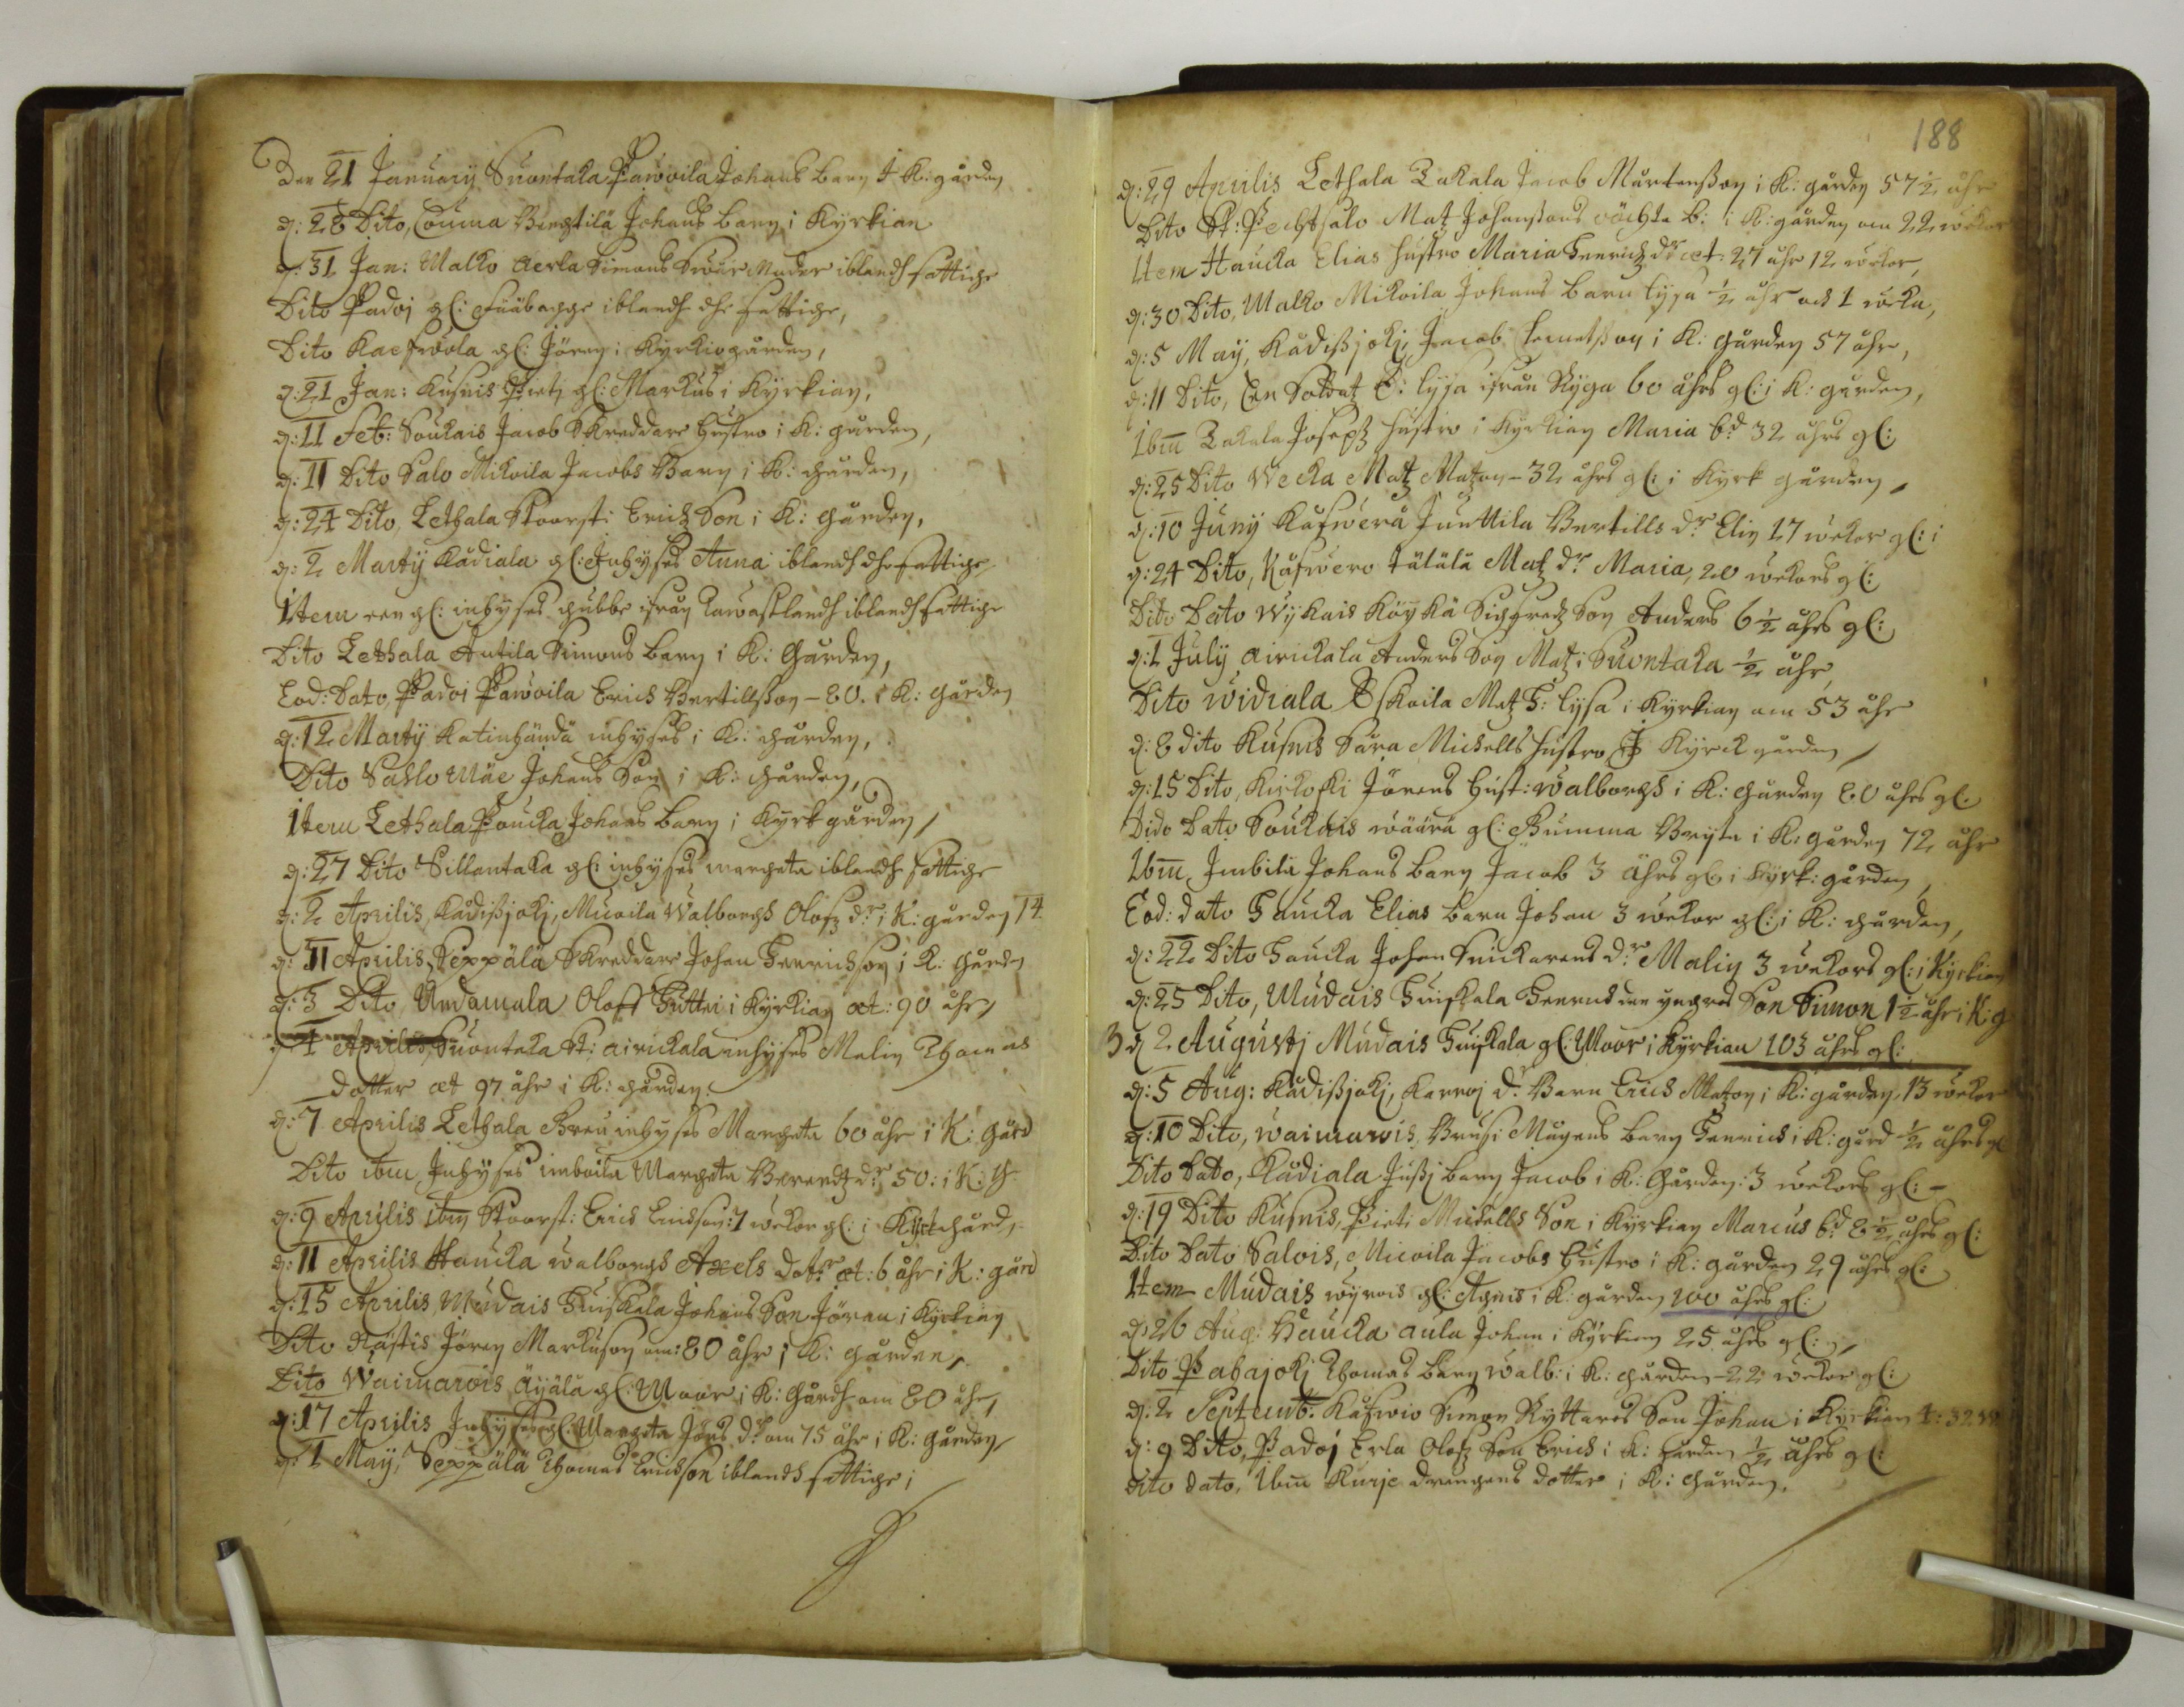 Den 21 January Suontaka Pawoila Johans barn I K: gården
d: 28 Dito, Couma Bengtilä Johans barn i Kyrkian
d: 31 Jan: Malko Aerla Simons Swär Moder iblandh fattige
Dito Padoj gl: iblandh dhe fattige,
Dito gl: Jören i Kyrkiogården,
d: 21 Jan: Kusnis Pieti gl: Markus i Kyrkian,
d: 11 Feb: Soukais Jacob Skreddare hustro i K: gården,
d: 11 Dito Salo Mikoila Jacobs Barn i K: gården,
d: 24 Dito, Lethala Stoorst: Erichs Son i K: gården,
d: 2 Martij Kådiala gl: Inhyses Anna iblandh dhe fattige
Item een gl: inhyses gubbe ifrån Tawastlandh iblandh fattige
Dito Lethala Antila Simons barn i K: Gården,
Eod: Dato, Padoi Pawoila Erich Bertillsson - 80. i K: gården
d: 12 Martij Katinhändä inhyses i K: gården,
Dito Sahlo Mäe Johans Son i K: gården,
Item Lethala Poucka Johans barn i Kyrkgården,
d: 27 Dito Sillantaka gl: inhyses Margeta iblandh fattige
d: 2 Aprilis, Kådissjokj, Micoila Walborgh Olofz dr: i K: gården 74
d: 11 Aprilis, Seppälä Skreddare Johan Henrichson i K: gården
d: 3 Dito, Undamala Oloff Huttri i Kyrkian æt: 90 åhr,
d: 4 Aprilis, Suontaka St: Airickala inhyses Malin Thomas
dotter æt 97 åhr i K: gården.
d: 7 Aprilis Lethala inhyses Margeta 60 åhr i K: gård
Dito ibm Inhyses imboila Margeta Berendtz dr 50: i K: G
d: 9 Aprilis ibm Stoorst: Erich Erichson: 7 wekor gl: i Kyrkegård,
d: 11 Aprilis Haucka Walborgh Axels dotr: æt: 6 åhr i K: gård
d: 15 Aprilis Mudais Huiskala Johans Son Jöran i Kyrkian
Dito Nästis Jören Markuson om: 80 åhr i K: gården,
Dito Waimarois Äyälä gl: Moor i K: Gårdh om 80 åhr,
d: 17 Aprilis Inhyses gl: Margeta Jöns dr om 75 åhr i K: gården,
d: 1 May, Seppälä Thomas Erichson iblandh fattige i
188
d: 29 Aprilis Lethala Zakala Jacob Mårtensson i K: gården 57 1/2 åhr
Dito St: Pechtsalo Matz Johanssons b: i K: gården om 22 wekor
Item Haucka Elias hustro Maria Henrichz dr æt: 27 åhr 12 wekor,
d: 30 Dito, Malko Mikoila Johans barn lysa 1/2 åhr och 1 weka,
d: 5 May, Kådissjokj, Jacob Clemetsson i K: gården 57 åhr,
d: 11 Dito, Een Soldatz E: lysa ifrån Ryga 60 åhrs gl: i K: gården,
Ibm Zakala Josephz hustro i Kyrkian Maria bd 32 åhrs gl:
d: 25 Dito Wecka Matz Matzon - 32 åhrs gl: i Kyrk gården,
d: 10 Juny Kåfwerå Junttila Bertills dr Elin 17 wekor gl: i
d: 24 Dito, Kåfwero Tälälä Matz dr Maria, 20 wekors gl:
Dito Dato Wykais Köykä Sigfredz Son Anders 6 1/2 åhrs gl:
d: 1 July Airickala Anders Son Matz i Suontaka 1/2 åhr,
Dito Widiala Eskoila Matz H: lysa i Kyrkian om 53 åhr
d: 8 dito Kusnis Sara Michells hustro I Kyrckgården,
d: 15 Dito, Jörens hust: Walborgh i K: gården 80 åhrs gl:
Dido Dato Soukais wäärä gl: Gumma Bryta i K: gården 72 åhr
Ibm, Imbilä Johans barn Jacob 3 åhrs gl: i Kyrk: gården,
Eod: dato Haucka Elias barn Johan 3 wekor gl: i K: gården,
d: 22 Dito Haucka Johan Snickarens dr Malin 3 wekors gl: i Kyrkian
d: 25 Dito, Mudais Huiskala Henrich den yngres Son Simon 1 1/2 åhr i K: g
3 d 2 Augustj Mudais Huiskala gl: Moor i Kyrkian 103 åhrs gl:
d: 5 Aug: Kådissjokj, Karroj d: Barn Erich Matzon i K: gården, 13 wekor
d: 10 Dito, Waimarois, Brusi Mågens barn Henrich i K: gård 1/2 åhrs gl
Dito Dato, Kådiala Jussj barn Jacob i K: Gården: 3 wekors gl: -
d: 19 Dito Kusnis, Pieti Michells Son i Kyrkian Marcus bd 8 1/2 åhrs gl:
Dito Dato Salois, Micoila Jacobs hustro i K: gården 29 åhrs gl:
Item Mudais wyrois gl: Agnis i K: gården 100 åhrs gl:
d: 26 Aug: Haucka aula Johan i Kyrkian 25 åhrs gl:
Dito Pahajokj Thomas barn Walb: i K: gården - 22 wekor gl:
d: 2 Septemb: Simon Ryttares Son Johan i Kyrkian
d: 9 Dito, Padoj Erla Olofz Son Erich i K: gården 1/2 åhrs gl:
Dito dato, Ibm Kurje drengens dotter i K: gården.